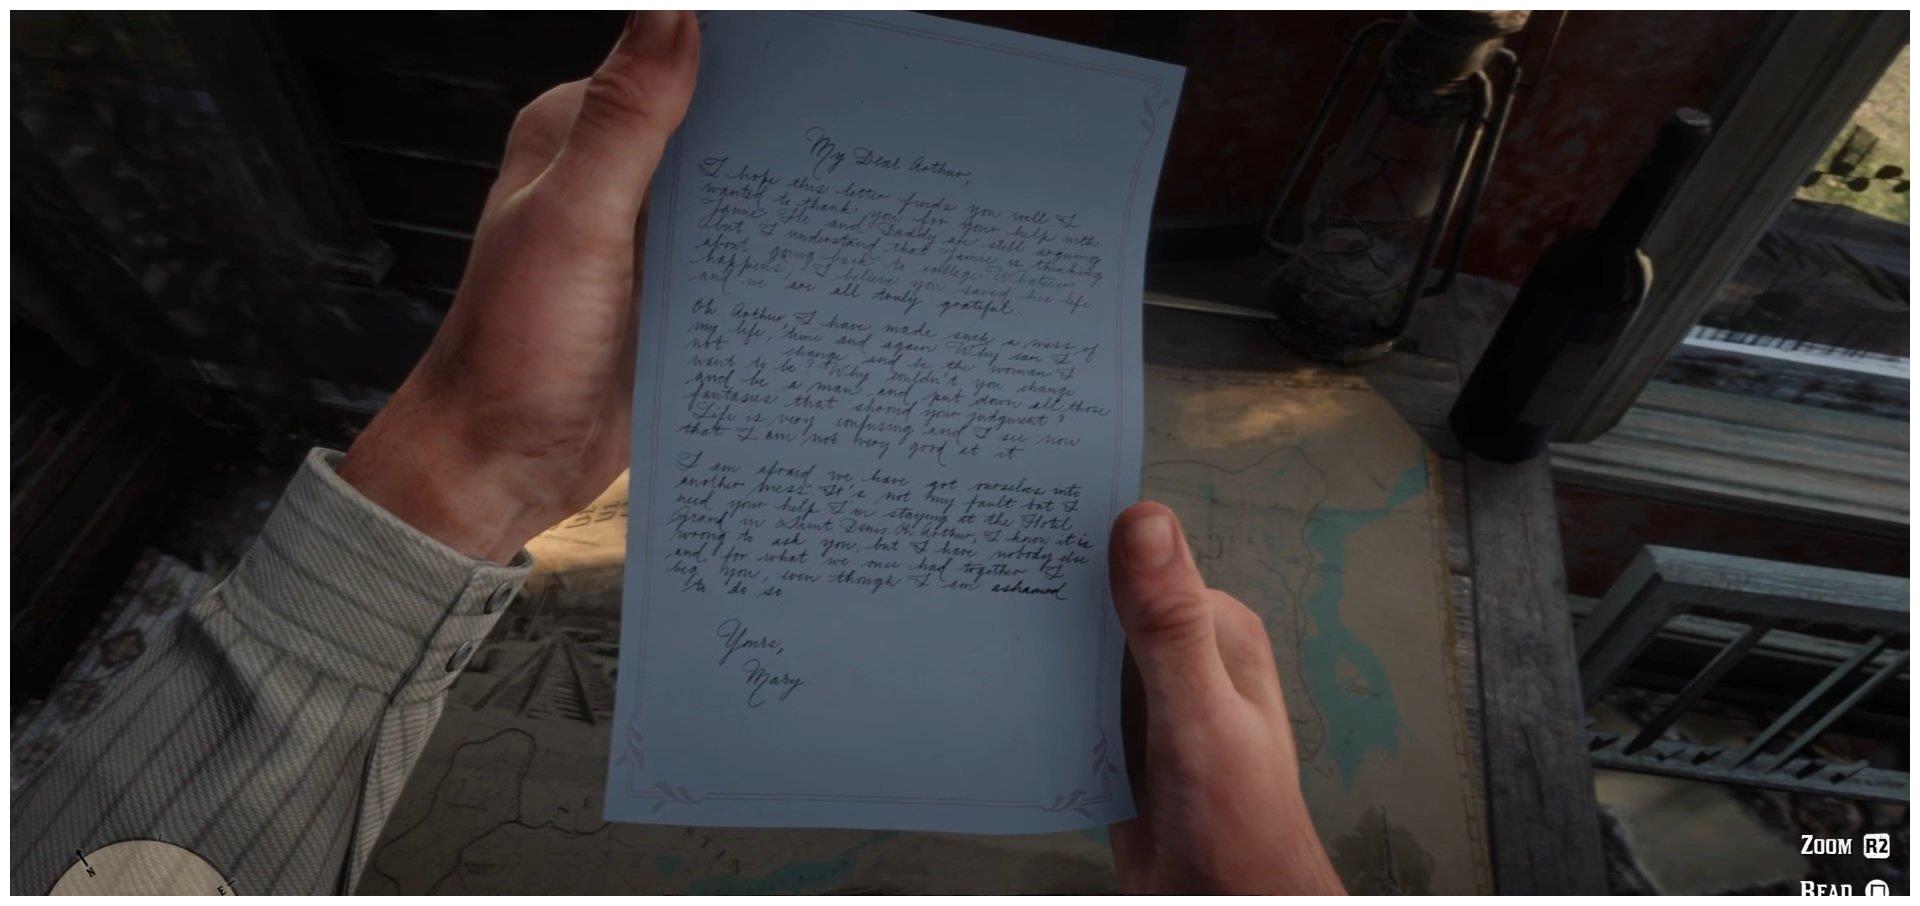 My Dear Arthur,
I hope this letter finds you well I
wanted to thank you for your help with
Jamie He and Daddy are still arguing
but I understand that Jamie is thinking
about going back to college. Whatever
happens, I believe you saved his life
and we are all truly grateful.
Oh Arthur, I have made such a mess of
my life, time and again Why can I
not change and be the woman I
want to be? Why couldn't you change
and be a man and put down all those
fantasies that shroud your judgment?
Life is very confusing and I see now
that I am not very good at it.
I am afraid we have got ourselves into
another mess. It's not my fault but I
need your help I'm staying at the Hotel
Grand in Saint Denis. Oh Arthur, I know it is
wrong to ask you, but I have nobody else
and for what we once had together I
beg you, even though I am ashamed
to do so.
Yours,
Mary.
N
E
ZOOM R2
READ